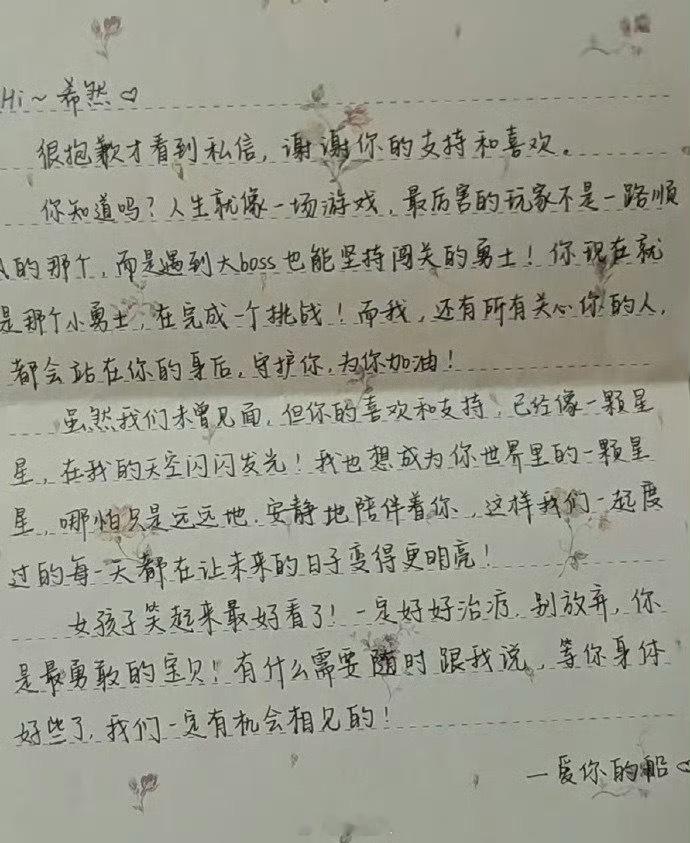 Hi～希然♡
很抱歉才看到私信，谢谢你的支持和喜欢。
你知道吗？人生就像一场游戏，最厉害的玩家不是一路顺
的那个，而是遇到大boss也能坚持闯关的勇士！你现在就
是那个小勇士，在完成一个挑战！而我，还有所有关心你的人，
都会站在你的身后，守护你，为你加油！
虽然我们未曾见面，但你的喜欢和支持，已经像一颗星
星，在我的天空闪闪发光！我也想成为你世界里的一颗星
星，哪怕只是远远地.安静地陪伴着你，这样我们一起度
过的每一天都在让未来的日子变得更明亮！
女孩子笑起来最好看了！一定好好治疗.别放弃，你
是最勇敢的宝贝！有什么需要随时跟我说，等你身体
好些了，我们一定有机会相见的！
—爱你的船♡